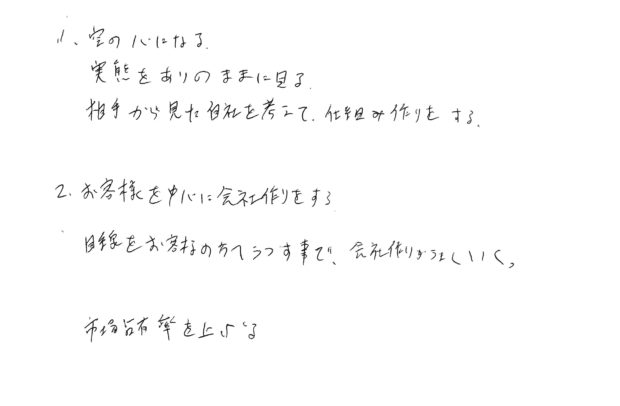 1、空の心になる。
実態をありのままに見る。
相手から見た自社を考えて、仕組み作りをする。
2、お客様を中心に会社作りをする
目線をお客様の方へうつす事で、会社作りがうまくいく。
市場占有率を上げる